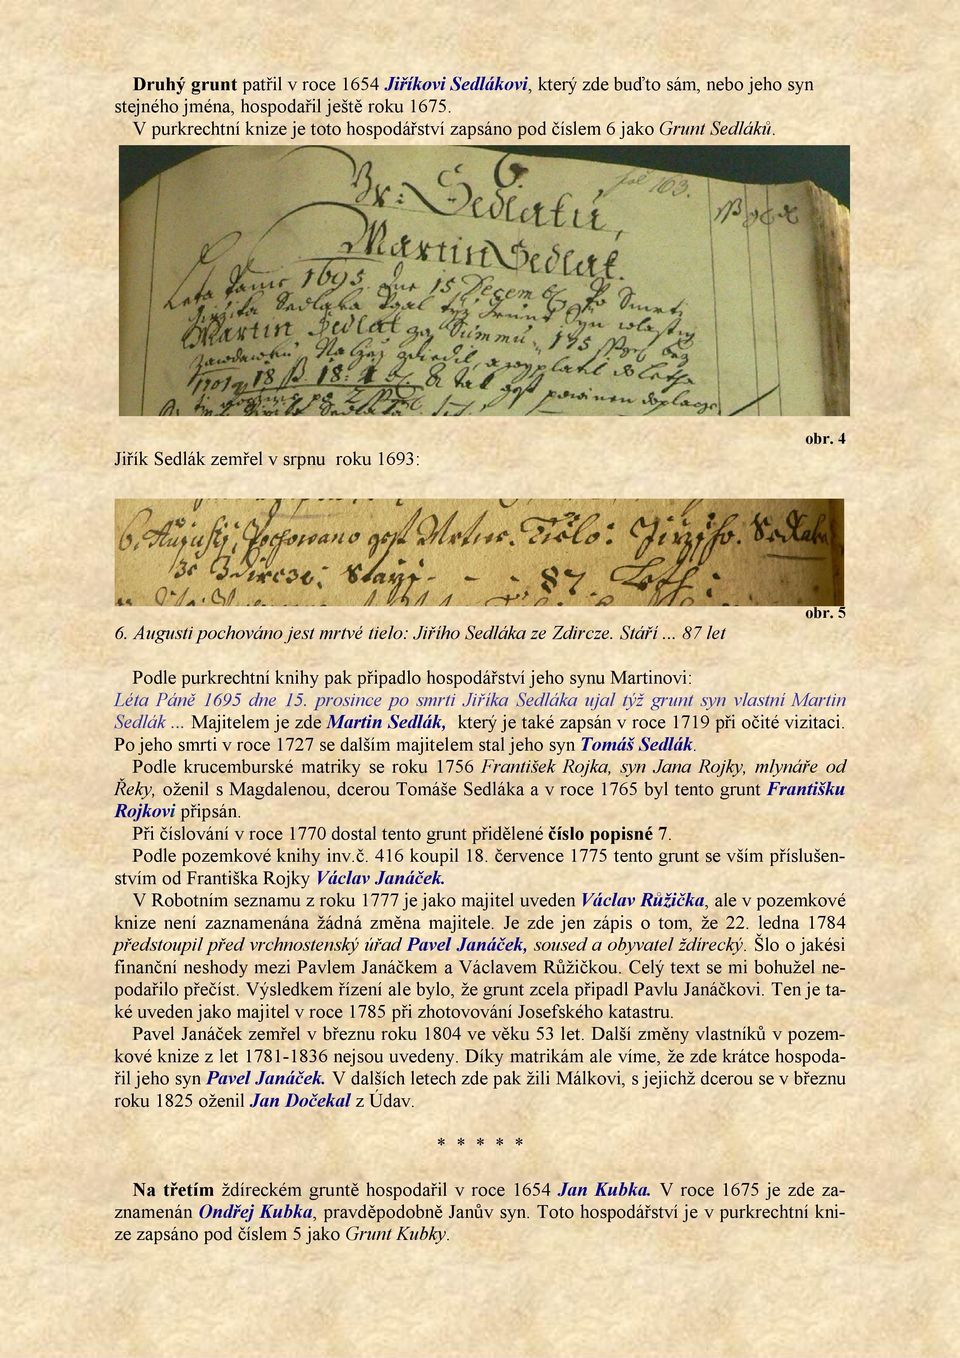 Druhý grunt patřil v roce 1654 Jiříkovi Sedlákovi, který zde buďto sám, nebo jeho syn
stejného jména, hospodařil ještě roku 1675.
V purkrechtní knize je toto hospodářství zapsáno pod číslem 6 jako Grunt Sedláků.
6.
fol 163.
Gr: Sedlaku,
Martin Sedlak.
Leta Panie 1695. dne 15 Decemb. Po Smrti
Jirzika Sedlaka Ugal tyz Grunt Syn wlastny
Martin Sedlak za Summu 175
zawdawku
1701 18 18: 4 A tak gest powinen doplacz
Sedlaka
obr. 4
Jiřík Sedlák zemřel v srpnu roku 1693:
6. Augusti, Pochowano gest Mrtwe. Tielo: Jirziho. Sedlaka
ze Zdircze: Starzi - - - 87. Leth:
obr. 5
6. Augusti pochováno jest mrtvé tielo: Jiřího Sedláka ze Zdircze. Stáří ... 87 let
Podle purkrechtní knihy pak připadlo hospodářství jeho synu Martinovi:
Léta Páně 1695 dne 15. prosince po smrti Jiříka Sedláka ujal týž grunt syn vlastní Martin
Sedlák ... Majitelem je zde Martin Sedlák, který je také zapsán v roce 1719 při očité vizitaci.
Po jeho smrti v roce 1727 se dalším majitelem stal jeho syn Tomáš Sedlák.
Podle krucemburské matriky se roku 1756 František Rojka, syn Jana Rojky, mlynáře od
Řeky, oženil s Magdalenou, dcerou Tomáše Sedláka a v roce 1765 byl tento grunt Františku
Rojkovi připsán.
Při číslování v roce 1770 dostal tento grunt přidělené číslo popisné 7.
Podle pozemkové knihy inv.č. 416 koupil 18. července 1775 tento grunt se vším příslušen-
stvím od Františka Rojky Václav Janáček.
V Robotním seznamu z roku 1777 je jako majitel uveden Václav Růžička, ale v pozemkové
knize není zaznamenána žádná změna majitele. Je zde jen zápis o tom, že 22. ledna 1784
předstoupil před vrchnostenský úřad Pavel Janáček, soused a obyvatel ždírecký. Šlo o jakési
finanční neshody mezi Pavlem Janáčkem a Václavem Růžičkou. Celý text se mi bohužel ne-
podařilo přečíst. Výsledkem řízení ale bylo, že grunt zcela připadl Pavlu Janáčkovi. Ten je ta-
ké uveden jako majitel v roce 1785 při zhotovování Josefského katastru.
Pavel Janáček zemřel v březnu roku 1804 ve věku 53 let. Další změny vlastníků v pozem-
kové knize z let 1781-1836 nejsou uvedeny. Díky matrikám ale víme, že zde krátce hospoda-
řil jeho syn Pavel Janáček. V dalších letech zde pak žili Málkovi, s jejichž dcerou se v březnu
roku 1825 oženil Jan Dočekal z Údav.
* * * * *
Na třetím ždíreckém gruntě hospodařil v roce 1654 Jan Kubka. V roce 1675 je zde za-
znamenán Ondřej Kubka, pravděpodobně Janův syn. Toto hospodářství je v purkrechtní kni-
ze zapsáno pod číslem 5 jako Grunt Kubky.